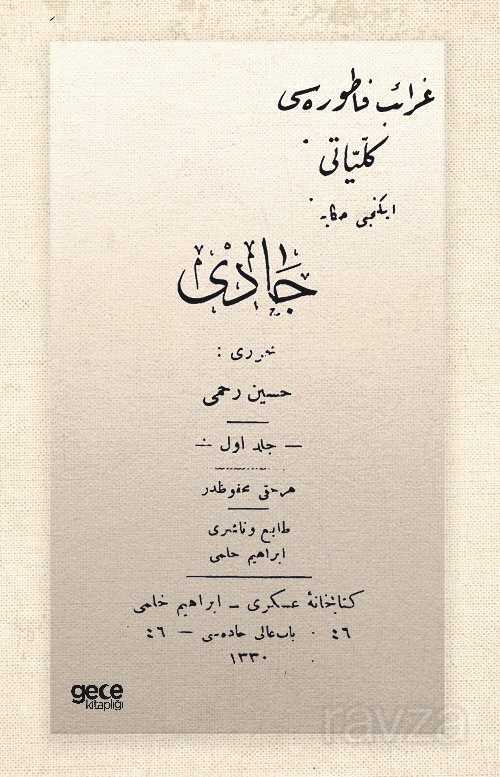 غرائب فاطوره‌سی
كلّیاتی
ایكنجی حكایه
جادی
محرری :
حسین رحمی
— جلد اول —
هر حقی محفوظدر
طابع و ناشری
ابراهیم حلمی
كتابخانهٔ عسكری – ابراهیم حلمی
٤٦ باب عالی جاده‌سی – ٤٦
١٣٣٠
gece
kitaplığı
ravza